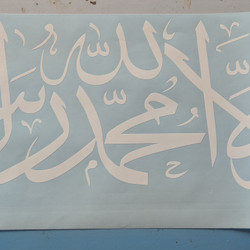 لّا الله محمّد رس